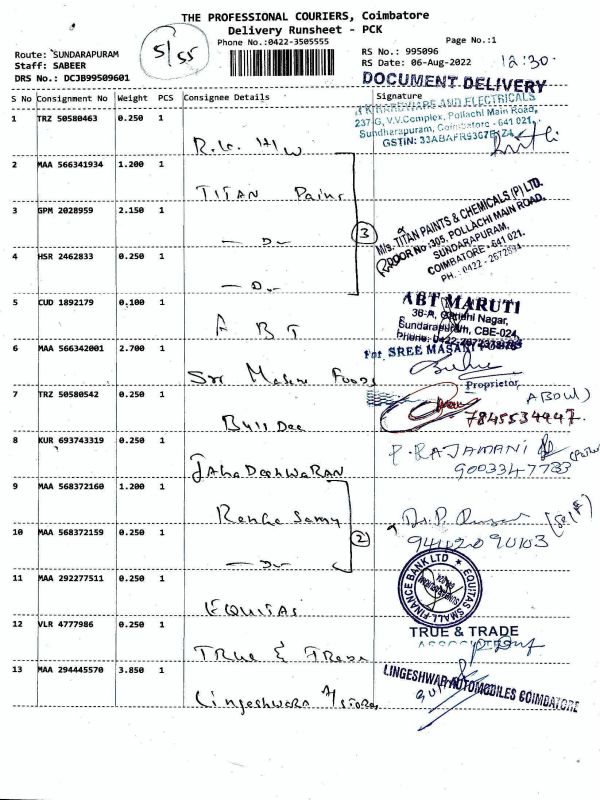 THE PROFESSIONAL COURIERS, Coimbatore
Delivery Runsheet - PCK
Phone No.:0422-3505555
Page No.:1
Route: SUNDARAPURAM
Staff: SABEER
DRS No.: DCJB99509601
5/55
RS No.: 995096
RS Date: 06-Aug-2022
12:30
DOCUMENT DELIVERY
S No Consignment No Weight PCS Consignee Details Signature
1 TRZ 50580463 0.250 1 R.K. H/W
HARDWARE AND ELECTRICALS
237-G, V.V.Complex, Pollachi Main Road,
Sundharapuram, Coimbatore - 641 021.
2 MAA 566341934 1.200 1 TITAN Paint
3 GPM 2028959 2.150 1 — D —
3
M/s. TITAN PAINTS & CHEMICALS (P) LTD.
DOOR No :305, POLLACHI MAIN ROAD,
SUNDARAPURAM,
COIMBATORE - 641 021.
4 HSR 2462833 0.250 1 — D —
5 CUD 1892179 0.100 1 A B T
ABT MARUTI
Gandhi Nagar,
Sundarapuram, CBE-024,
6 MAA 566342001 2.700 1 Sri Foods
For SREE
Proprietor
7 TRZ 50580542 0.250 1 Bull Dee
7845534447
8 KUR 693743319 0.250 1 JAhaDeeshwaRAN
P. RAJAMANI
9003347733
9 MAA 568372160 1.200 1 RenhaSamy
10 MAA 568372159 0.250 1 — D —
2
11 MAA 292277511 0.250 1 EQUITAS
EQUITAS SMALL FINANCE BANK LTD
12 VLR 4777986 0.250 1 TRue & TRade
TRUE & TRADE
13 MAA 294445570 3.850 1 Lingeshwara A/Stores
LINGESHWAR AUTOMOBILES COIMBATORE